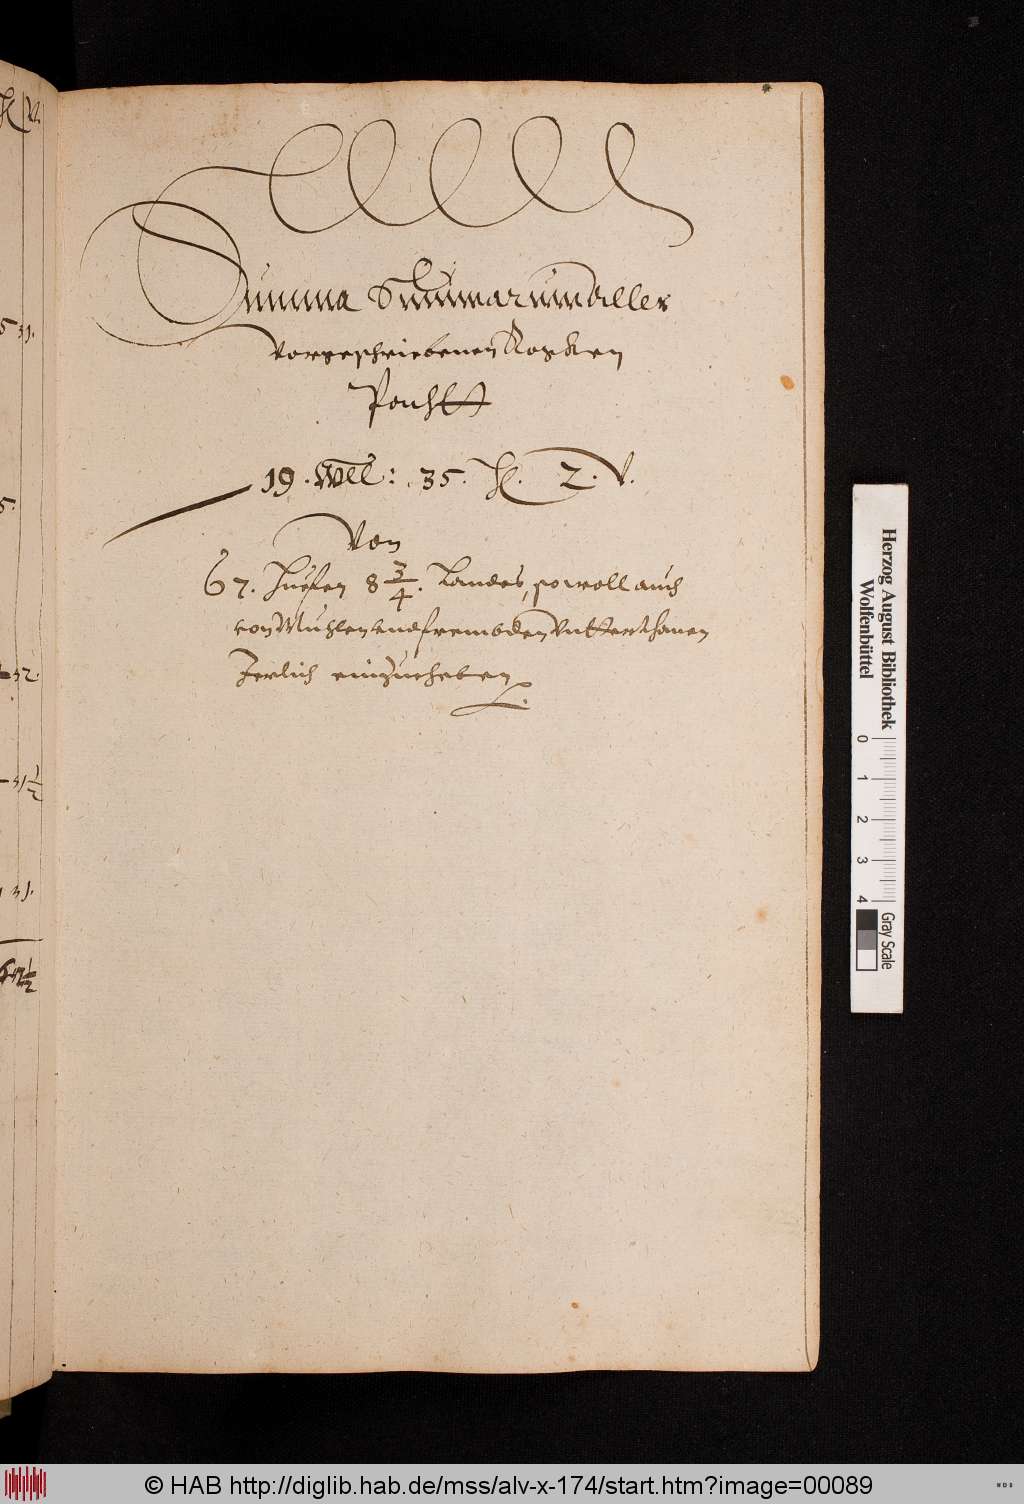 Summa Summarum Aller
vorgeschriebenen Rogken
Pacht
19. Wll: 35. H. 2. V.
Von
67. Huefen 8 3/4. Landes, sowoll auch
von Muhlen und frembden Untterthanen
Jerlich einzuheben
31.
5.
32.
31 1/2
31.
Herzog August Bibliothek
Wolfenbüttel
0 1 2 3 4
Gray Scale
© HAB http://diglib.hab.de/mss/alv-x-174/start.htm?image=00089